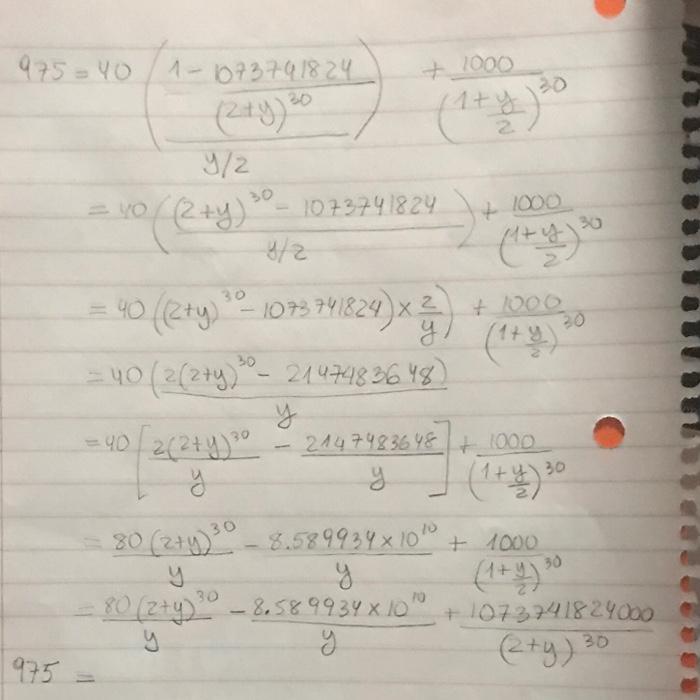 975 = 40 ( (1 - 1073741824/(2+y)^30) / (y/2) ) + 1000/(1+y/2)^30
= 40 ( ((2+y)^30 - 1073741824) / (y/2) ) + 1000/(1+y/2)^30
= 40 ((2+y)^30 - 1073741824) × 2/y ) + 1000/(1+y/2)^30
= 40 (2(2+y)^30 - 2147483648) / y
= 40 [ 2(2+y)^30/y - 2147483648/y ] + 1000/(1+y/2)^30
= 80(2+y)^30/y - 8.589934×10^10/y + 1000/(1+y/2)^30
= 80(2+y)^30/y - 8.589934×10^10/y + 1073741824000/(2+y)^30
975 =